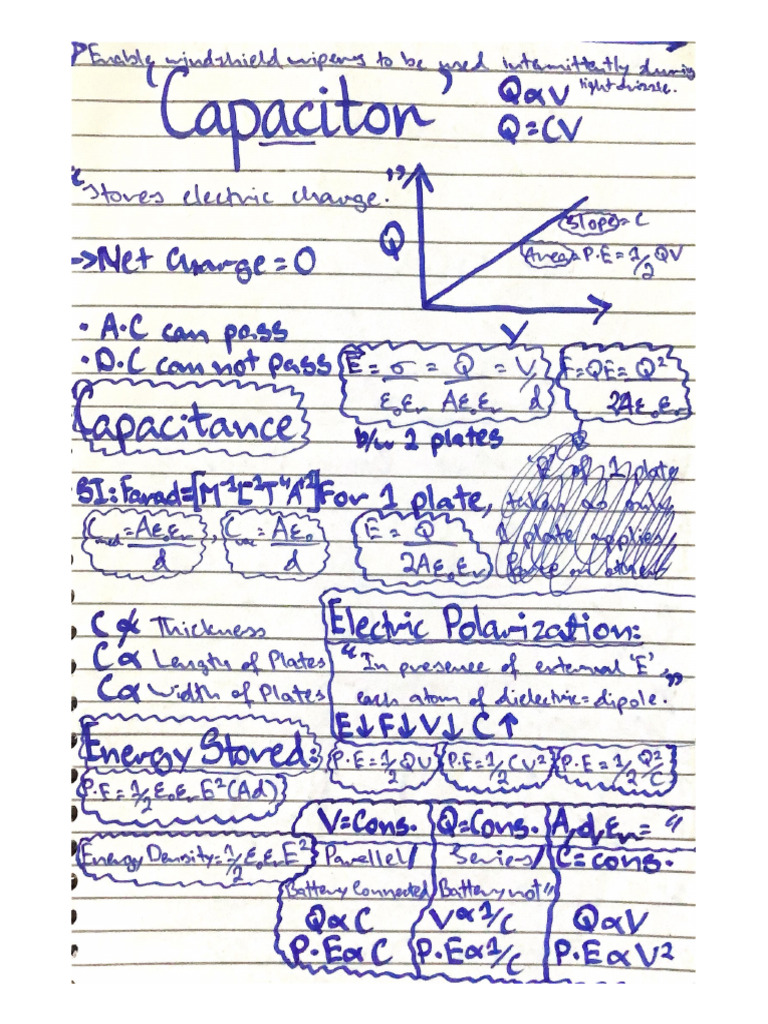 Enable windshield wipers to be used intermittently during
light drizzle.
'Capacitor'
Q∝V
Q=CV
"Stores electric charge."
→Net Charge=0
Q
Slope=C
Area=P.E=1/2 QV
V
• A.C can pass
• D.C can not pass
E = σ/ε₀εᵣ = Q/Aε₀εᵣ = V/d
F=QE=Q²/2Aε₀εᵣ
b/w 2 plates
Capacitance
SI: Farad=[M⁻¹L⁻²T⁴A⁺²]
For 1 plate,
C_med=Aε₀εᵣ/d , C_vac=Aε₀/d
E = Q/2Aε₀εᵣ
C ∝̸ Thickness
C∝ Length of Plates
C∝ Width of Plates
Electric Polarization:
"In presence of external 'E',
each atom of dielectric=dipole."
E↓F↓V↓ C↑
Energy Stored:
P.E=1/2 QV
P.E=1/2 CV²
P.E=1/2 Q²/C
P.E=1/2 ε₀εᵣE²(Ad)
Energy Density=1/2 ε₀εᵣE²
V=Cons. Q=Cons. A,d,εᵣ= "
Parallel/ Series/ C=cons.
Battery Connected Battery not "
Q∝C V∝1/C Q∝V
P.E∝C P.E∝1/C P.E∝V²